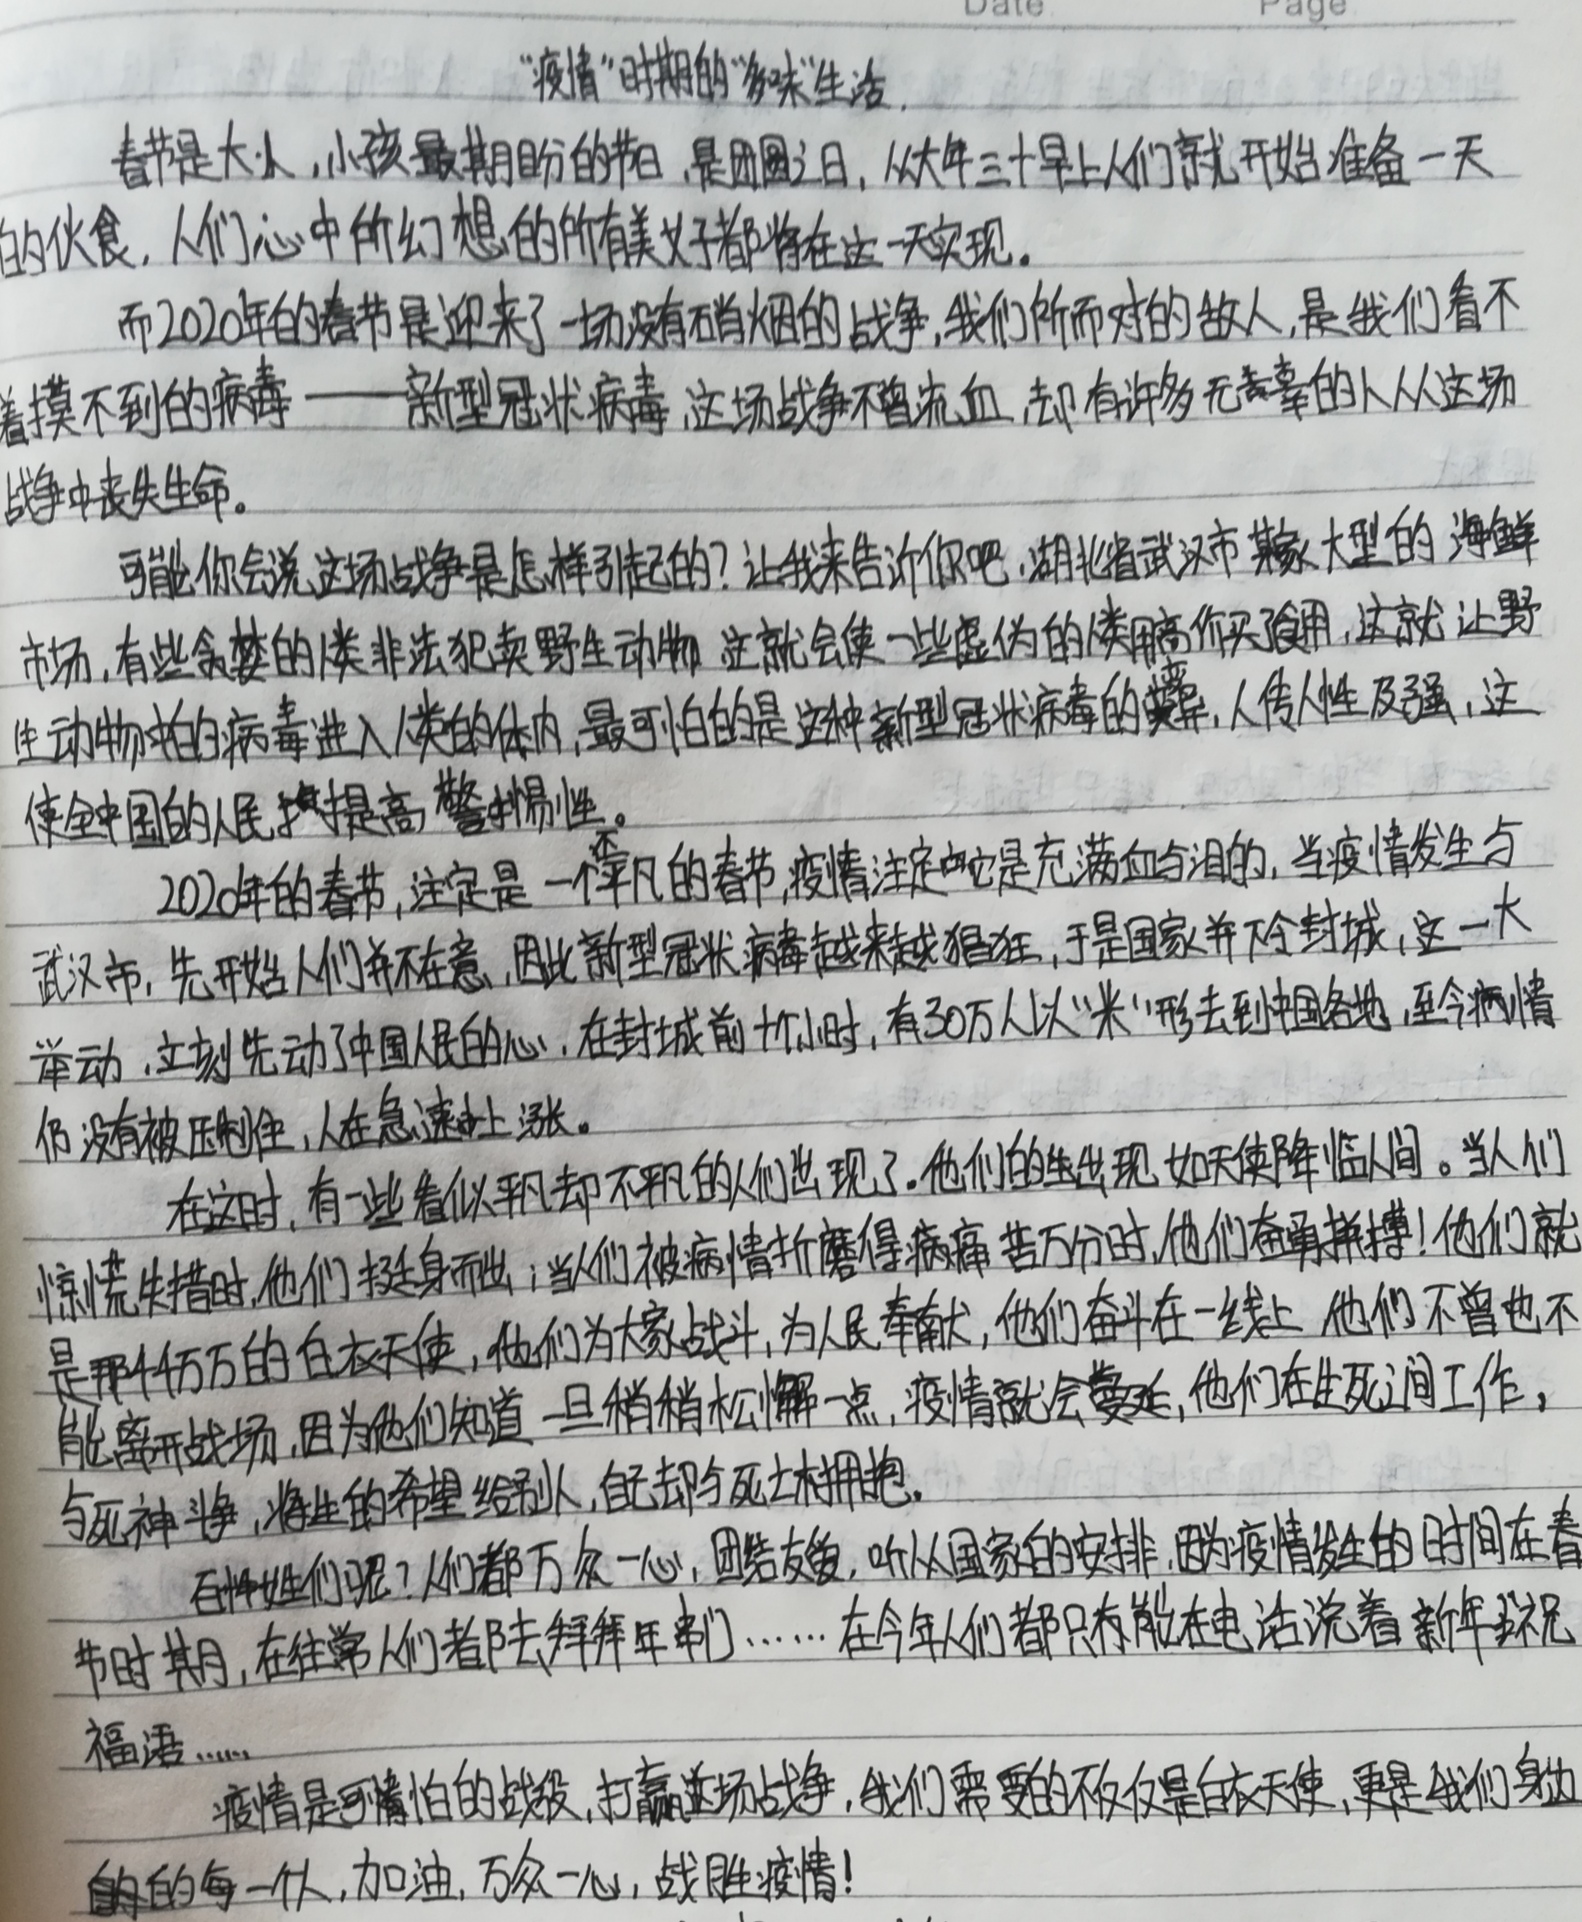 Date Page
"疫情"时期的"多味"生活.
春节是大人,小孩最期盼的节日,是团圆之日,从大年三十早上人们就开始准备一天
的伙食,人们心中所幻想的所有美好都将在这一天实现。
而2020年的春节是迎来了一场没有硝烟的战争,我们所面对的敌人,是我们看不
着摸不到的病毒——新型冠状病毒,这场战争不曾流血,却有许多无辜的人从这场
战争中丧失生命。
可能你会说这场战争是怎样引起的?让我来告诉你吧,湖北省武汉市某家大型的海鲜
市场,有些贪婪的人类非法犯卖野生动物 这就会使一些虚伪的人类用高价买了食用,这就让野
生动物的病毒进入人类的体内,最可怕的是这种新型冠状病毒的变异,人传人性及强,这
使全中国的人民提高警惕性。
2020年的春节,注定是一个不平凡的春节,疫情注定它是充满血与泪的,当疫情发生与
武汉市,先开始人们并不在意,因此新型冠状病毒越来越猖狂,于是国家并下令封城,这一大
举动,立刻先动了中国人民的心,在封城前十个小时,有30万人以"米"形去到中国各地,至今病情
仍没有被压制住,人在急速上涨。
在这时,有一些看似平凡却不平凡的人们出现了。他们的出现如天使降临人间。当人们
惊慌失措时,他们挺身而出;当人们被病情折磨得病痛苦万分时,他们奋勇拼搏!他们就
是那千千万万的白衣天使,他们为大家战斗,为人民奉献,他们奋斗在一线上 他们不曾也不
能离开战场,因为他们知道一旦稍稍松懈一点,疫情就会蔓延,他们在生死之间工作,
与死神斗争,将生的希望给别人,自己却与死士相拥抱。
百姓们呢?人们都万众一心,团结友爱,听从国家的安排,因为疫情发生的时间在春
节时期,在往常人们都去拜年串门……在今年人们都只有能在电话说着新年祝
福语……
疫情是可怕的战役,打赢这场战争,我们需要的不仅仅是白衣天使,更是我们身边
的每一个人,加油,万众一心,战胜疫情!